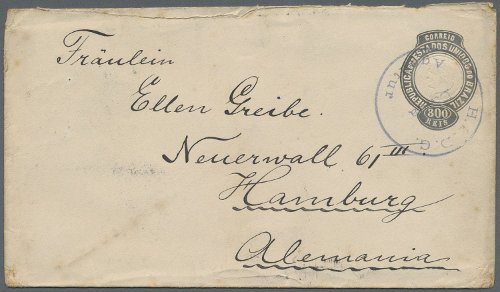 CORREIO
REPUBLICA DOS ESTADOS UNIDOS DO BRAZIL
300
REIS
H.S.D.G.
Fräulein
Ellen Greibe.
Neuerwall 61 III
Hamburg
Alemania